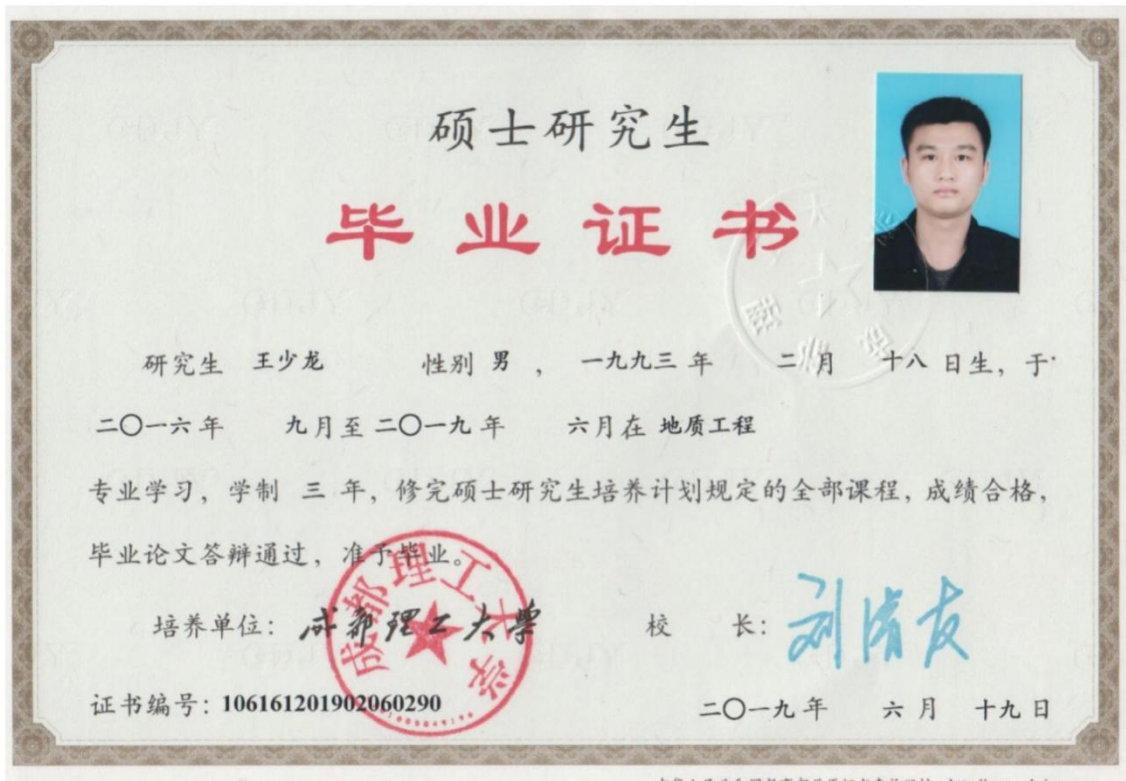 硕士研究生
毕业证书
研究生 王少龙 性别 男 ， 一九九三 年 二 月 十八 日生，于
二〇一六 年 九 月至 二〇一九 年 六 月在 地质工程
专业学习，学制 三 年，修完硕士研究生培养计划规定的全部课程，成绩合格，
毕业论文答辩通过，准予毕业。
培养单位：成都理工大学
成都理工大学
校 长：刘清友
证书编号：106161201902060290
二〇一九 年 六 月 十九 日